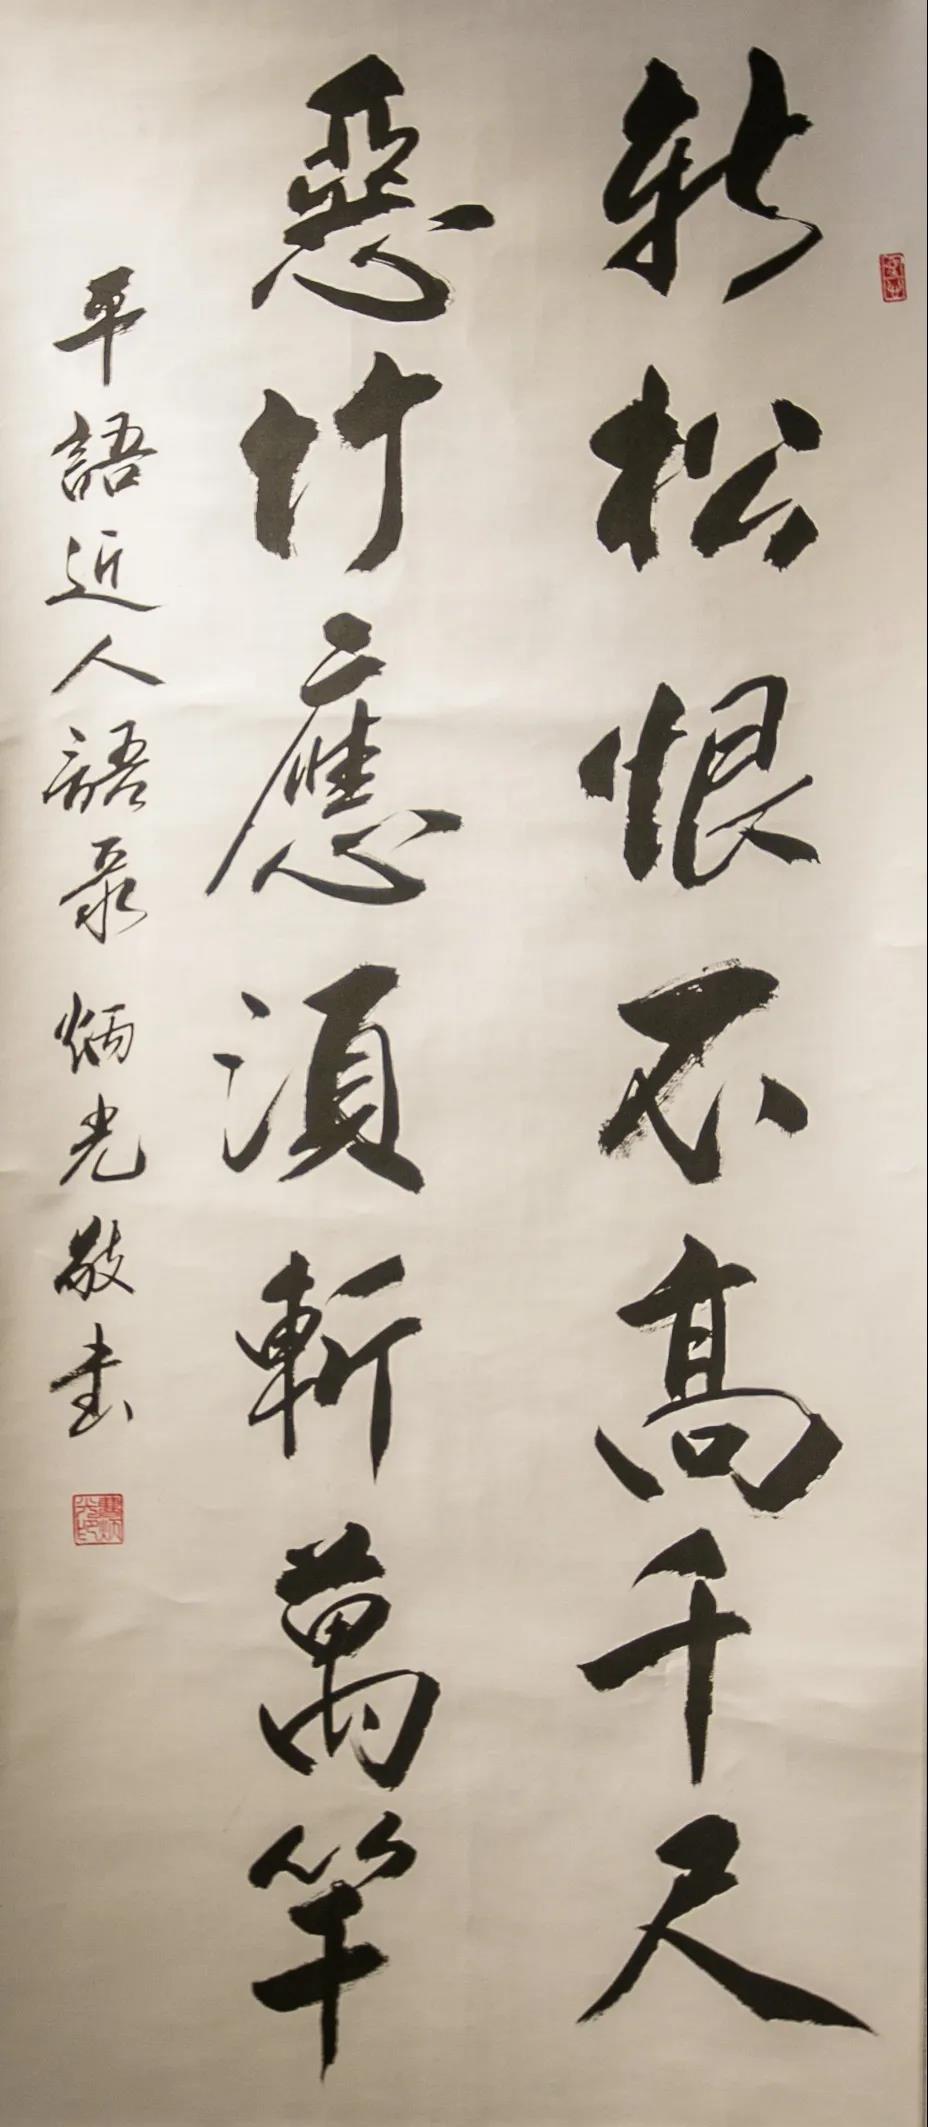 新松恨不高千尺
惡竹應須斬萬竿
平語近人語录 炳光敬书